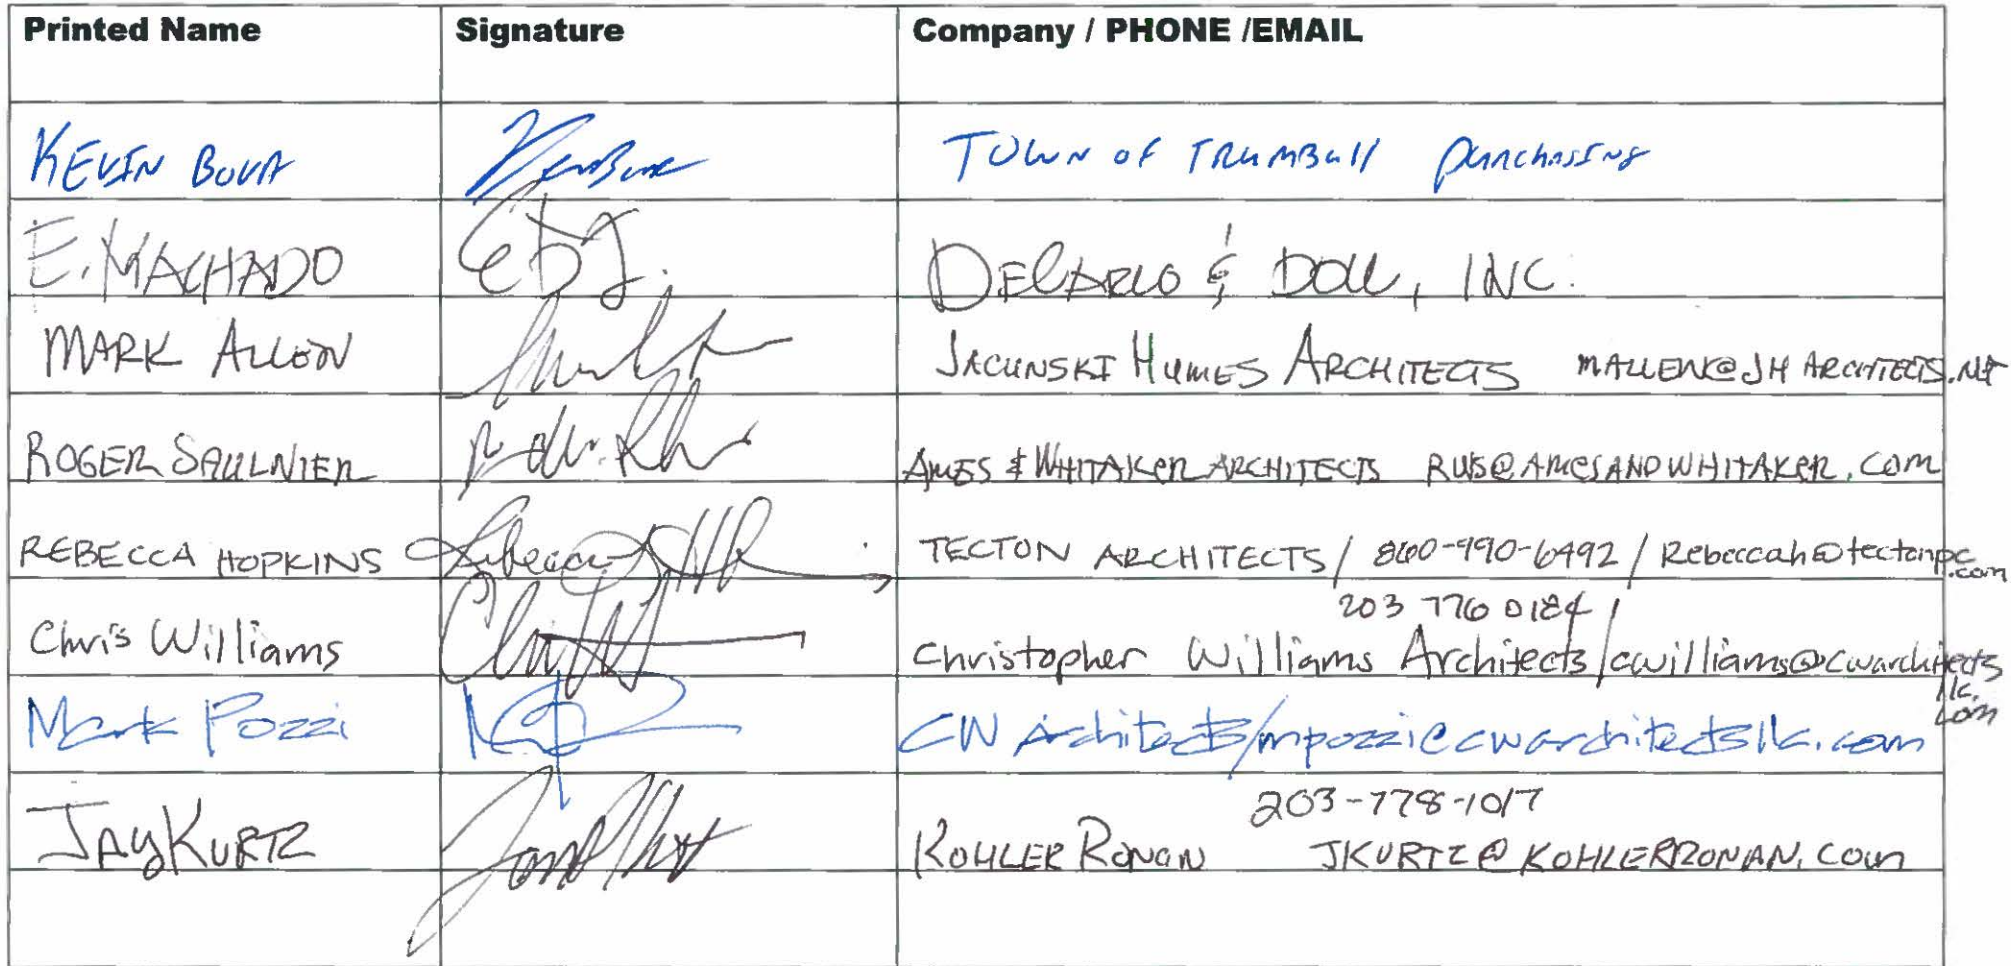 Printed Name Signature Company / PHONE /EMAIL
KEVIN BOVA TOWN OF TRUMBULL PURCHASING
E. MACHADO DECARLO & DOLL, INC.
MARK ALLEN JACUNSKI HUMES ARCHITECTS MALLEN@JHARCHITECTS.NET
ROGER SAULNIER AMES & WHITAKER ARCHITECTS RWS@AMESANDWHITAKER.COM
REBECCA HOPKINS TECTON ARCHITECTS / 860-990-6492 / Rebeccah@tectonpc.com
203 776 0184
Chris Williams Christopher Williams Architects / cwilliams@cwarchitects
llc.
com
Mark Pozzi CW Architects/mpozzi@cwarchitectsllc.com
203-778-1017
JAY KURTZ KOHLER RONAN JKURTZ@KOHLERRONAN.COM